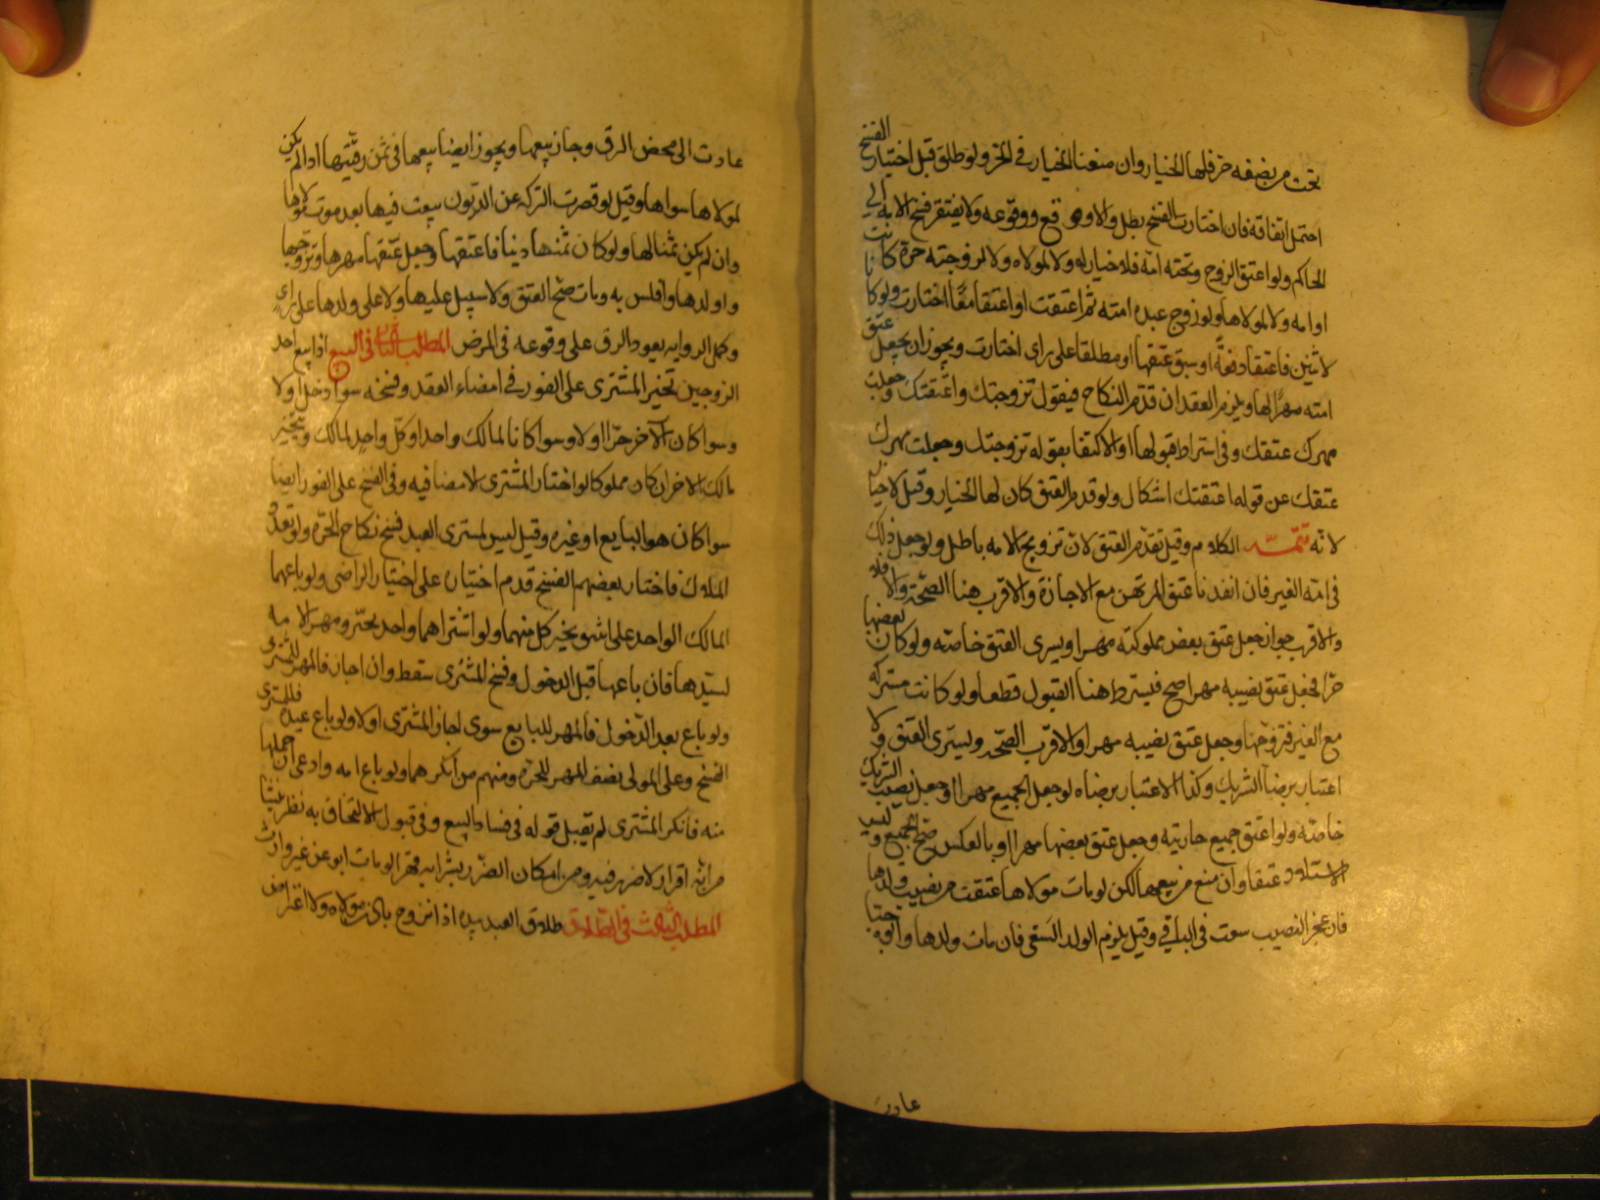 تحت من بضفه حر فلها الخيار وان منعنا الخيار في الحر ولو طلق قبل اختيار الفسخ
احتمل ايقافه فان اختارت الفسخ بطل والا وقع ووقوعه ولا يفتقر فسخ الامة الى
الحاكم ولو اعتق الزوج وتحته امة فلا خيار له ولا لمولاه ولا لزوجته حرة كانت
او امه ولا لمولاها ولو زوج عبده امته ثم اعتقت او اعتقا معًا اختارت ولو كانا
لاثنين فاعتقا دفعة او سبق عتقها او مطلقا على راى اختارت ويجوز ان يجعل عتق
امته مهرًا لها ويلزم العقد ان قدم النكاح فيقول تزوجتك واعتقتك وجعلت
مهرك عتقك وفى اشتراط قبولها او الاكتفا بقوله تزوجتك وجعلت مهرك
عتقك عن قوله اعتقتك اشكال ولو قدم العتق كان لها الخيار وقيل لاخيار
لانه تتمة الكلام وقيل تقدم العتق لان تزويج الامه باطل ولو جعل ذلك
فى امة الغير فان انفدنا عتق المرتهن مع الاجازة والاقرب هنا الصحة والا فلا
والاقرب جواز جعل عتق بعض مملوكته مهرا ويسرى العتق خاصته ولو كان بعضها
حرا فجعل عتق نصيبه مهرا صح فيشترط هنا القبول قطعا ولو كانت مشتركة
مع الغير فتزوجها وجعل عتق نصيبه مهرا فالاقرب الصحه ويسرى العتق ولا
اعتبار برضا الشريك وكذا لا اعتبار برضاه لو جعل الجميع مهرا او جعل نصيب الشريك
خاصة ولو اعتق جميع جاريته وجعل عتق بعضها مهرا او بالعكس صح الجميع وليس
الاستيلاد عتقا وان منع من بيعها لكن لو مات مولاها عتقت من نصيب ولدها
فان عجز النصيب سعت فى الباقي وقيل يلزم الولد السعى فان مات ولدها وابوه حيا
عادت
عادت الى محض الرق وجاز بيعها ويجوز ايضا بيعها فى ثمن رقبتها اذا لم يكن
لمولاها سواها وقيل لو قصرت التركة عن الديون بيعت فيها بعد موت مولاها
وان لم يكن ثمنا لها ولو كان ثمنها دينا فاعتقها وجعل عتقها مهرها وتزوجها
واولدها وافلس به ومات صح العتق ولا سبيل عليها ولا على ولدها على راى
وتحمل الروايه بعود الرق على وقوعه فى المرض المطلب الثانى فى البيع اذا بيع احد
الزوجين تخير المشترى على الفور في امضاء العقد وفسخه سوا دخل اولا
وسوا كان الآخر حرا اولا وسوا كانا لمالك واحد او كل واحد لمالك ويتخير
مالك الاخر ان كان مملوكا لو اختار المشترى الامضا فيه وفى الفسخ على الفور ايضا
سوا كان هو البايع او غيره وقيل ليس لمشترى العبد فسخ نكاح الحرة ولو تعدد
الملاك فاختار بعضهم الفسخ قدم اختياره على اختيار الراضى ولو باعهما
المالك الواحد على اثنين تخير كل منهما ولو اشتراهما واحد تخير ومهر الامه
لسيدها فان باعها قبل الدخول وفسخ المشترى سقط وان اجاز فالمهر للمشترى
ولو باع بعد الدخول فالمهر للبايع سوى اجاز المشترى اولا ولو باع عبده فللمشترى
الفسخ وعلى المولى نصف المهر للحرة ومنهم من انكرهما ولو باع امه وادعى ان حملها
منه فانكر المشترى لم يقبل قوله فى فساد البيع وفى قبول الالتحاق به نظر ينشا
من انه اقرار لا ضرر فيه ومن امكان الضرر بشرايه قهرا لو مات ابو عن غير وارث
المطلب الثالث فى الطلاق طلاق العبد بيده اذا تزوج باذن مولاه ولا اعتراض